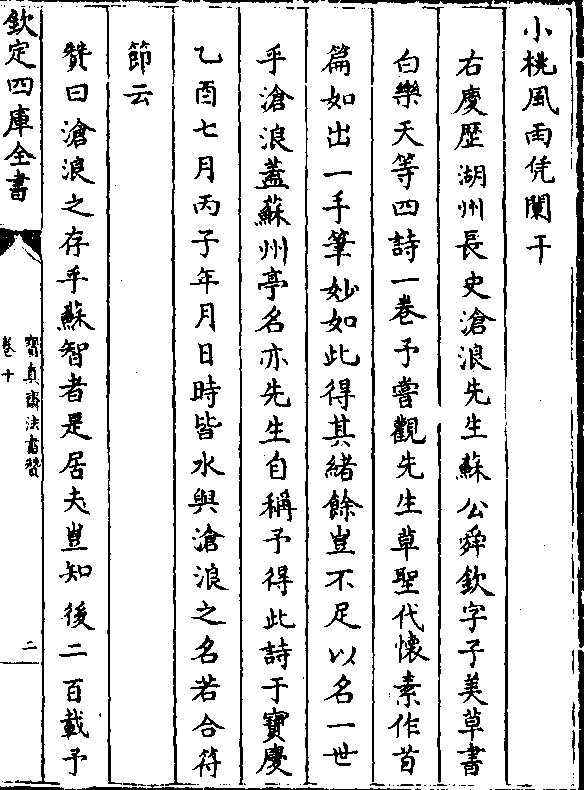 小桃風雨凭闌干
右慶歴湖州長史滄浪先生蘇公舜欽字子美草書
白樂天等四詩一卷予嘗觀先生草聖代懷素作首
篇如出一手筆妙如此得其緒餘豈不足以名一世
乎滄浪蓋蘇州亭名亦先生自稱予得此詩于寶慶
乙酉七月丙子年月日時皆水與滄浪之名若合符
節云
贊曰滄浪之存乎蘇智者是居夫豈知後二百載予
欽定四庫全書
寶真齋法書贊
卷十
二